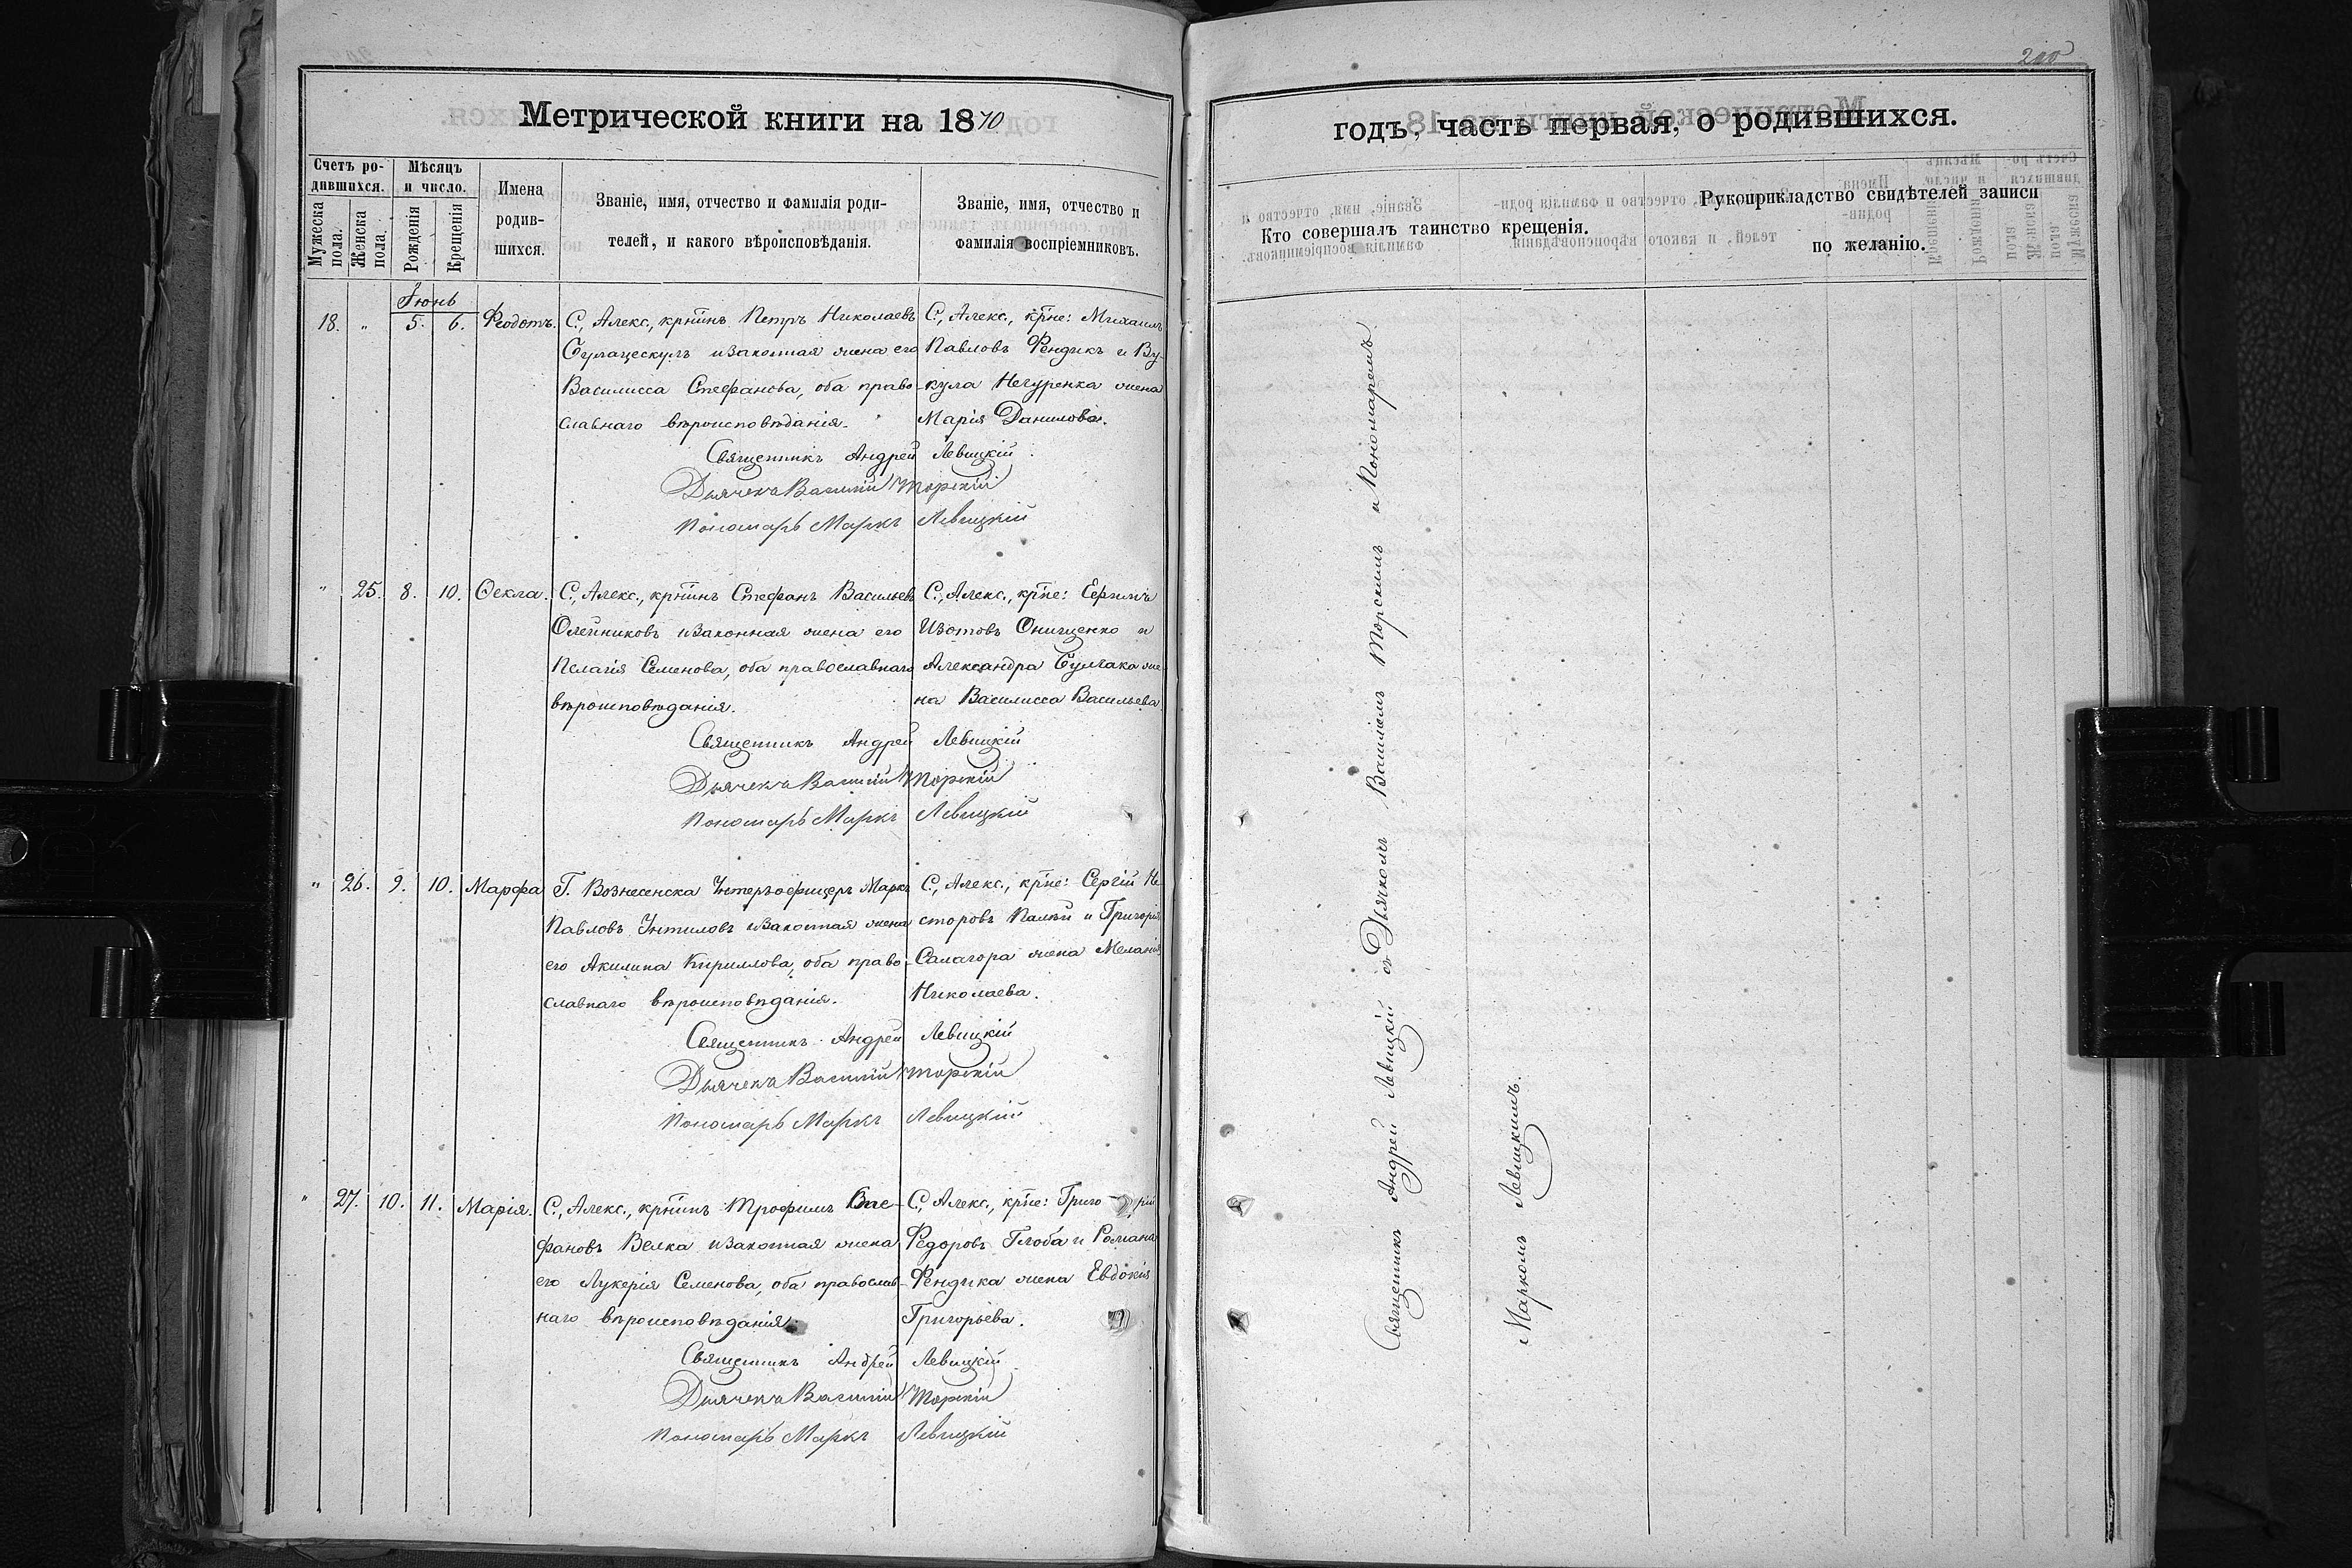 Метрической книги на 1870
Счетъ родившихся.
Мужеска пола.
Женска пола.
Мѣсяцъ и число.
Рожденія
Крещенія
Имена родившихся.
Званіе, имя, отчество и фамилія родителей, и какого вѣроисповѣданія.
Званіе, имя, отчество и фамилія воспріемниковъ.
Іюнь
18. " 5. 6. Феодотъ.
С., Алекс., крт͞инъ Петръ Николаевъ
изаконная жена его
Василисса Стефанова, оба право-
славнаго вѣроисповѣданія.
С., Алекс., кр͞не: Михаилъ
Павловъ Фендикъ и Ву-
кула Негуренка жена
Марія Данилова.
Священникъ Андрей Левицкій
Дьячекъ Василій Торскій
Пономарь Маркъ Левицкій
" 25. 8. 10. Ѳекла.
С., Алекс., крт͞инъ Стефанъ Васильевъ
Олейниковъ изаконная жена его
Пелагія Семенова, оба православнаго
вѣроисповѣданія.
С., Алекс., кр͞не: Ефимъ
Изотовъ Онищенко и
Александра Булгака же-
на Василисса Васильева.
Священникъ Андрей Левицкій
Дьячекъ Василій Торскій
Пономарь Маркъ Левицкій
" 26. 9. 10. Марфа
Г. Вознесенска Унтеръофицеръ Маркъ
Павловъ Унтиловъ изаконная жена
его Акилина Кириллова, оба право-
славнаго вѣроисповѣданія.
С., Алекс., кр͞не: Сергій Не
сторовъ Палѣй и Григорія
Салагора жена Меланія
Николаева.
Священникъ Андрей Левицкій
Дьячекъ Василій Торскій
Пономарь Маркъ Левицкій
" 27. 10. 11. Марія.
С., Алекс., крт͞инъ Трофимъ Сте-
фановъ Велка изаконная жена
его Лукерія Семенова, оба православ-
наго вѣроисповѣданія.
С., Алекс., кр͞не: Григорій
Федоровъ Глоба и Романа
Фендика жена Евдокія
Григорьева.
Священникъ Андрей Левицкій
Дьячекъ Василій Торскій
Пономарь Маркъ Левицкій
200
годъ, часть первая, о родившихся.
Кто совершалъ таинство крещенія.
Рукоприкладство свидѣтелей записи
по желанію.
Священникъ Андрей Левицкій съ Дьячкомъ Василіемъ Торскимъ и Пономаремъ
Маркомъ Левицкимъ.